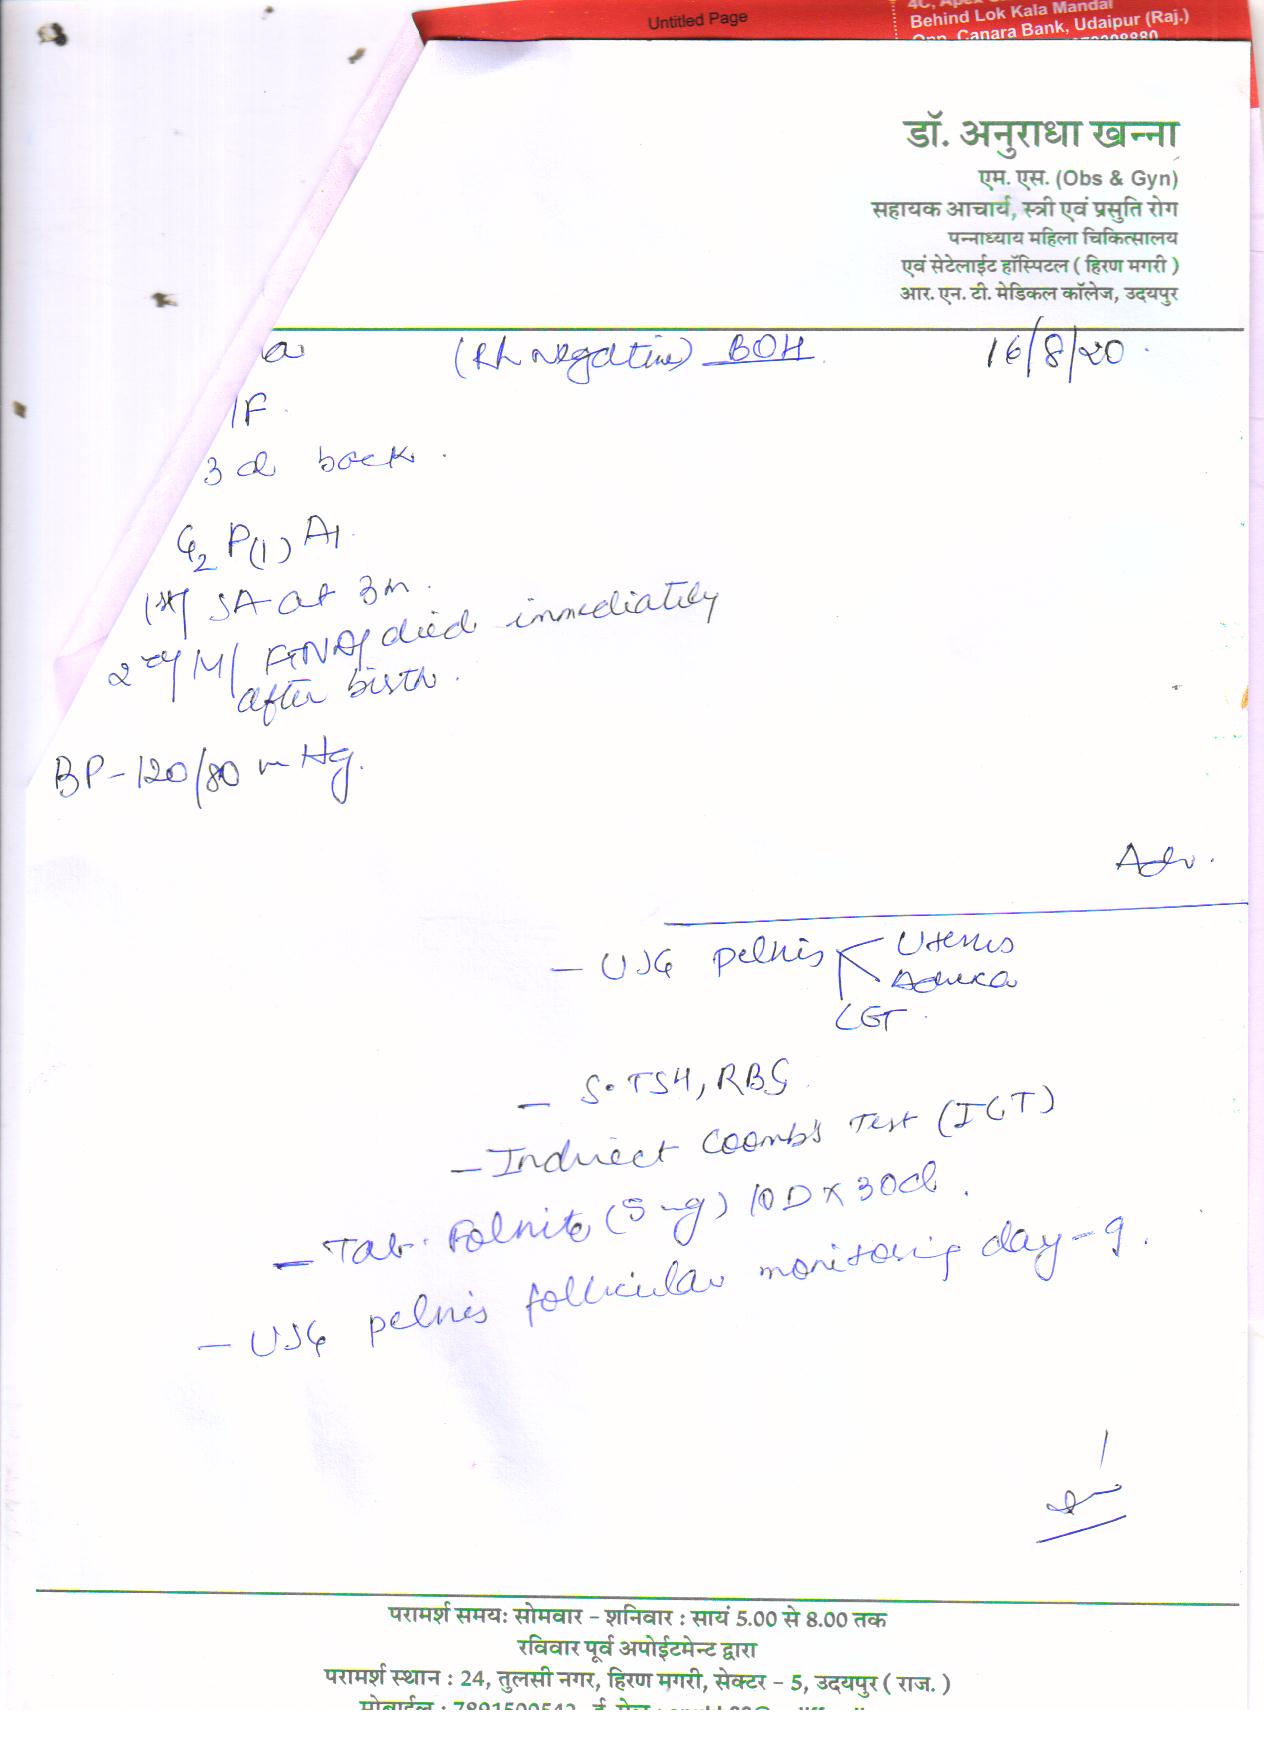 Untitled Page
Behind Lok Kala Mandal
Opp. Canara Bank, Udaipur (Raj.)
डॉ. अनुराधा खन्ना
एम. एस. (Obs & Gyn)
सहायक आचार्य, स्त्री एवं प्रसुति रोग
पन्नाध्याय महिला चिकित्सालय
एवं सेटेलाईट हॉस्पिटल ( हिरण मगरी )
आर. एन. टी. मेडिकल कॉलेज, उदयपुर
a (Rh negative) BOH 16/8/20
/F
3 d back
G2 P(1) A1
1st/ SA at 3m.
2nd/ M/ FTND/ died immediately
after birth.
BP-120/80 mHg.
Adv.
- USG pelvis Uterus
Adnexa
- S.TSH, RBS
- Indirect Coomb's Test (ICT)
- Tab. Folvite (5 mg) 1OD x 30d.
- USG pelvis follicular monitoring day-9.
परामर्श समयः सोमवार - शनिवार : सायं 5.00 से 8.00 तक
रविवार पूर्व अपोईटमेन्ट द्वारा
परामर्श स्थान : 24, तुलसी नगर, हिरण मगरी, सेक्टर - 5, उदयपुर ( राज. )